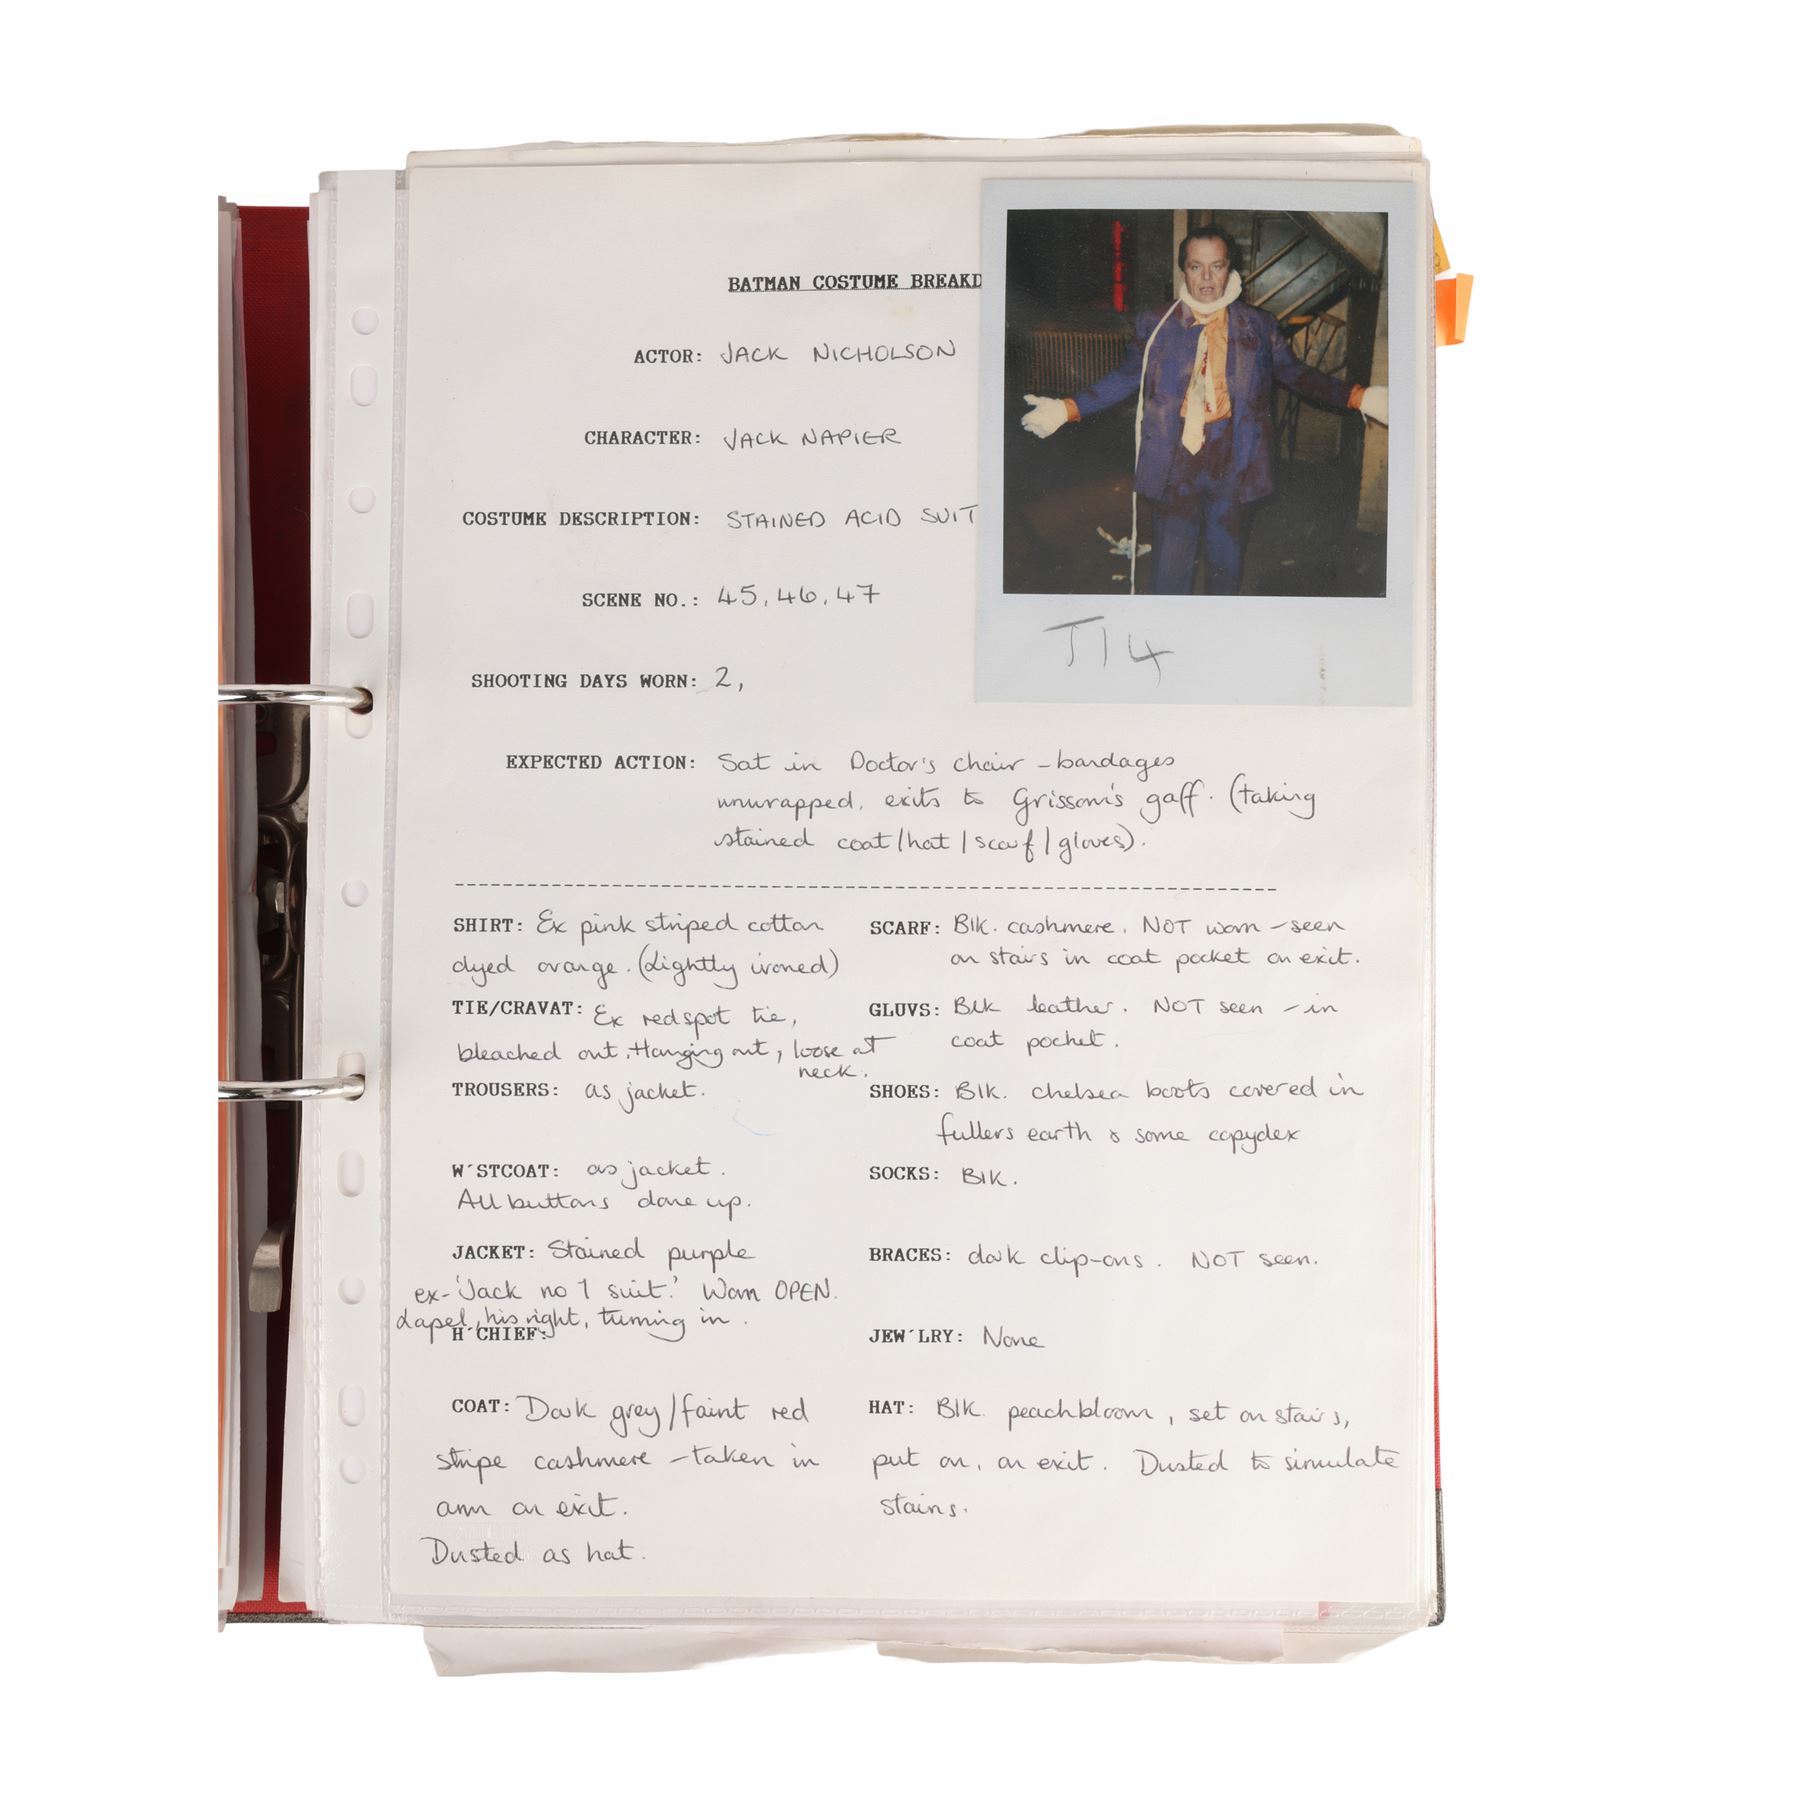 BATMAN COSTUME BREAKD
ACTOR: JACK NICHOLSON
CHARACTER: JACK NAPIER
COSTUME DESCRIPTION: STAINED ACID SUIT
SCENE NO.: 45, 46, 47
SHOOTING DAYS WORN: 2,
EXPECTED ACTION: Sat in Doctor's chair - bandages
unwrapped, exits to Grissom's gaff. (taking
stained coat/hat/scarf/gloves).
J14
SHIRT: Ex pink striped cotton
dyed orange. (Lightly ironed)
TIE/CRAVAT: Ex red spot tie,
bleached out, Hanging out, loose at
neck.
TROUSERS: as jacket.
W'STCOAT: as jacket.
All buttons done up.
JACKET: Stained purple
ex-'Jack no 1 suit.' Worn OPEN.
Lapel, his right, turning in.
H'CHIEF:
COAT: Dark grey/faint red
stripe cashmere - taken in
arm on exit.
Dusted as hat.
SCARF: Blk. cashmere. NOT worn - seen
on stairs in coat pocket on exit.
GLUVS: Blk leather. NOT seen - in
coat pocket.
SHOES: Blk. chelsea boots covered in
fullers earth & some copydex
SOCKS: Blk.
BRACES: dark clip-ons. NOT seen.
JEW'LRY: None
HAT: Blk. peachbloom, set on stairs,
put on, on exit. Dusted to simulate
stains.